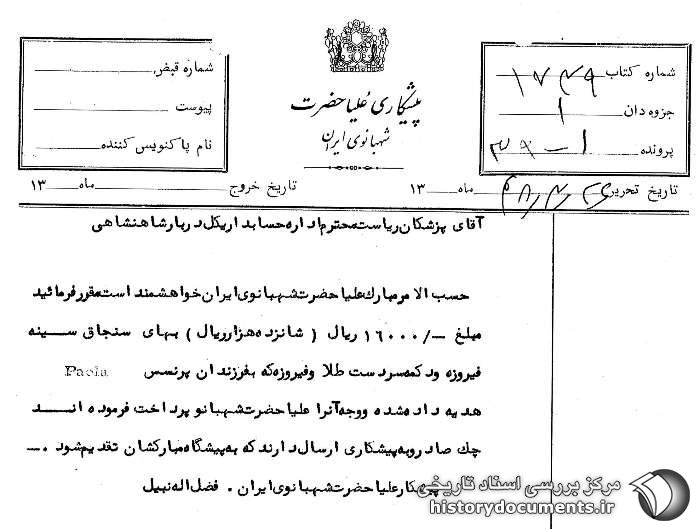 پیشکاری علیاحضرت
شهبانوی ایران
شماره کتاب ۱۷۴۹
جزوه دان ۱
پرونده ۱-۳۹
شماره قبض
پیوست
نام پاکنویس کننده
تاریخ تحریر ماه ۱۳
تاریخ خروج ماه ۱۳
آقای پزشکان ریاست محترم اداره حسابداری کل دربار شاهنشاهی
حسب الامر مبارک علیاحضرت شهبانوی ایران خواهشمند است مقرر فرمائید
مبلغ -/۱۶۰۰۰ ریال ( شانزده هزار ریال ) بهای سنجاق سینه
فیروزه و دکمه سردست طلا و فیروزه که بفرزندان پرنسس Paola
هدیه داده شده و وجه آنرا علیاحضرت شهبانو پرداخت فرموده اند
چک صادر و به پیشکاری ارسال دارند که به پیشگاه مبارکشان تقدیم شود .ـ
پیشکار علیاحضرت شهبانوی ایران . فضل اله نبیل
مرکز بررسی اسناد تاریخی
historydocuments.ir